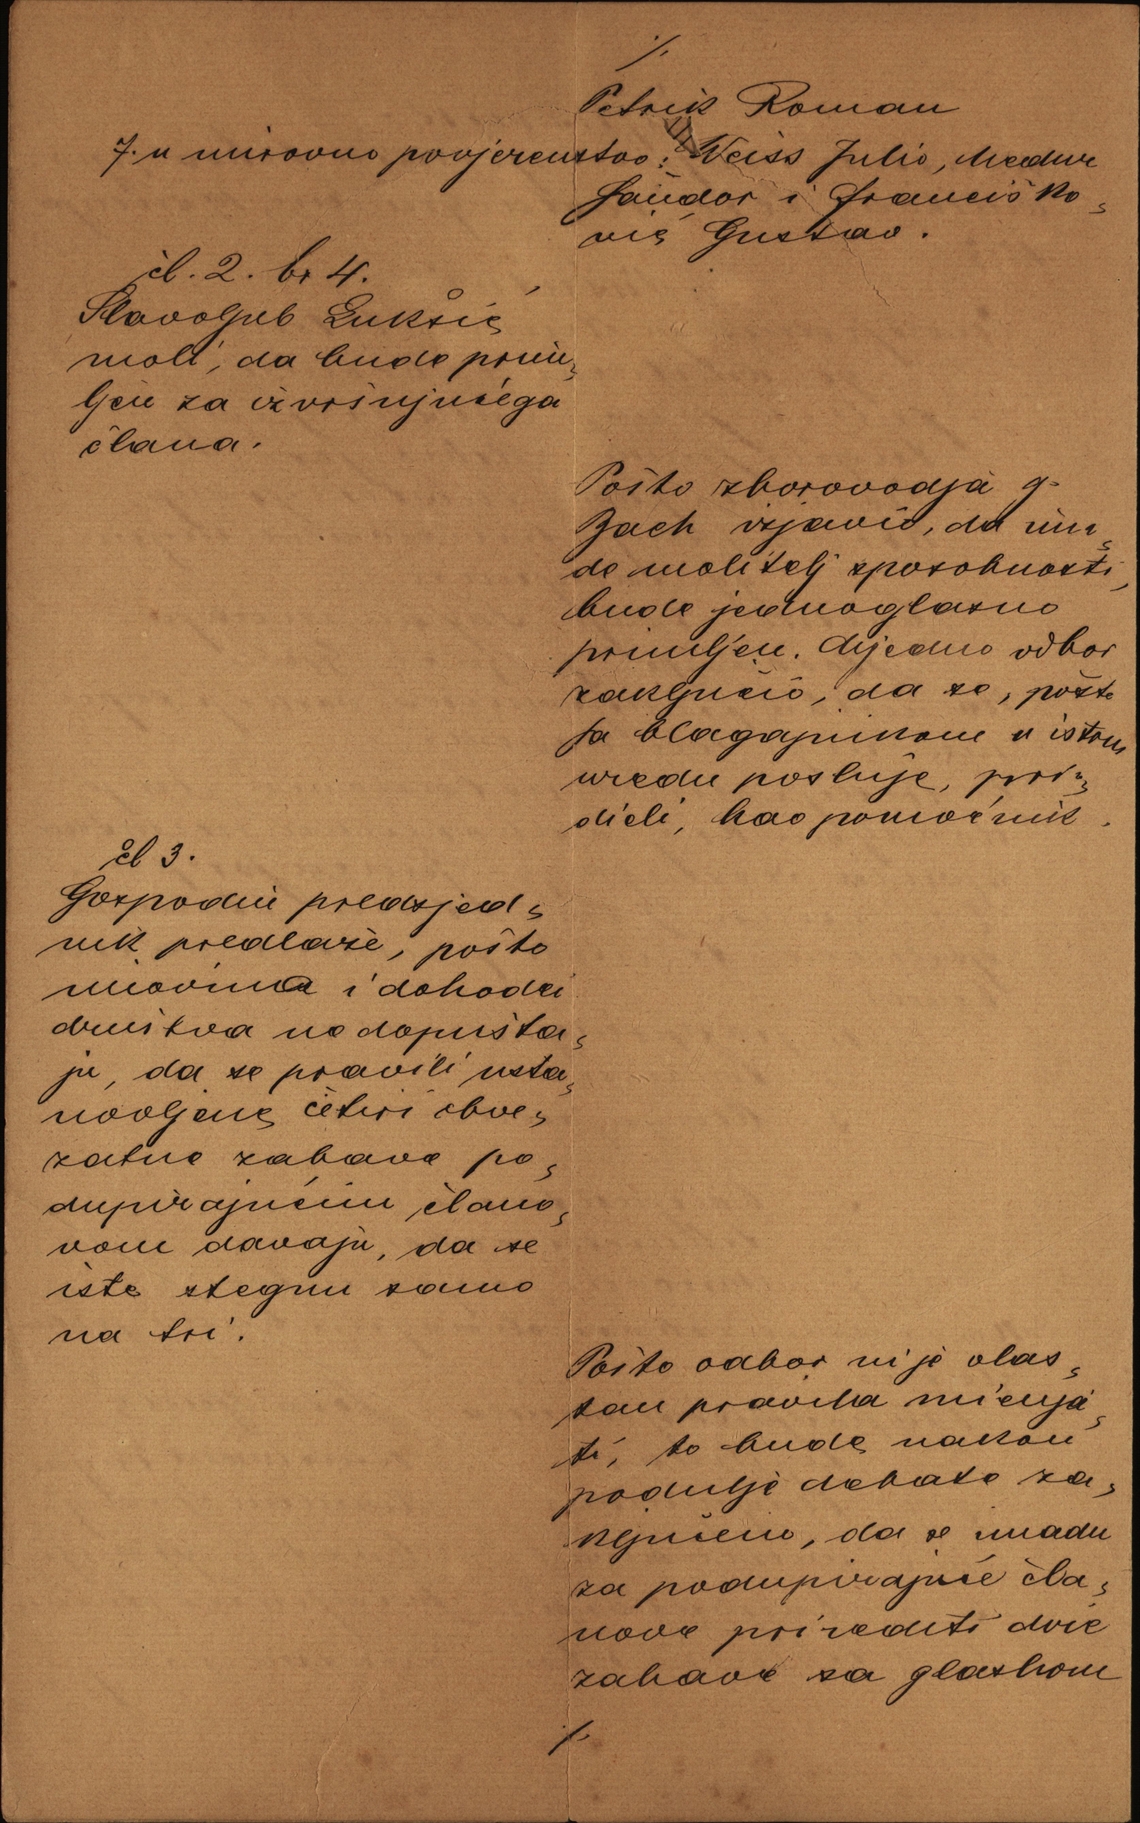 ./.
Petrik Roman
7. u mirovno povjerenstvo: Weiss Julio, Medur
Šandor i Francisko-
vić Gustav.
čl. 2. br 4.
Slavoljub Lukšić
moli, da bude prim-
ljen za izvršujućega
člana.
Pošto zborovodja g.
Zach izjavio, da ima-
de molitelj sposobnosti,
bude jednoglasno
primljen. Ujedno odbor
zaključio, da se, pošto
sa blagajnikom u istom
uredu posluje, pri-
dieli, kao pomoćnik.
čl 3.
Gospodin predsjed-
nik predlaže, pošto
imovina i dohodci
društva ne dopušta-
ju, da se pravili usta-
novljene četiri obve-
zatne zabave po-
dupirajućim člano-
vom davaju, da se
iste stegnu samo
na tri.
Pošto odbor nije vlas-
tan pravila mienja-
ti, to bude nakon
podulje debate za-
ključeno, da se imadu
za podupirajuće čla-
nove prirediti dvie
zabave sa glasbom
./.